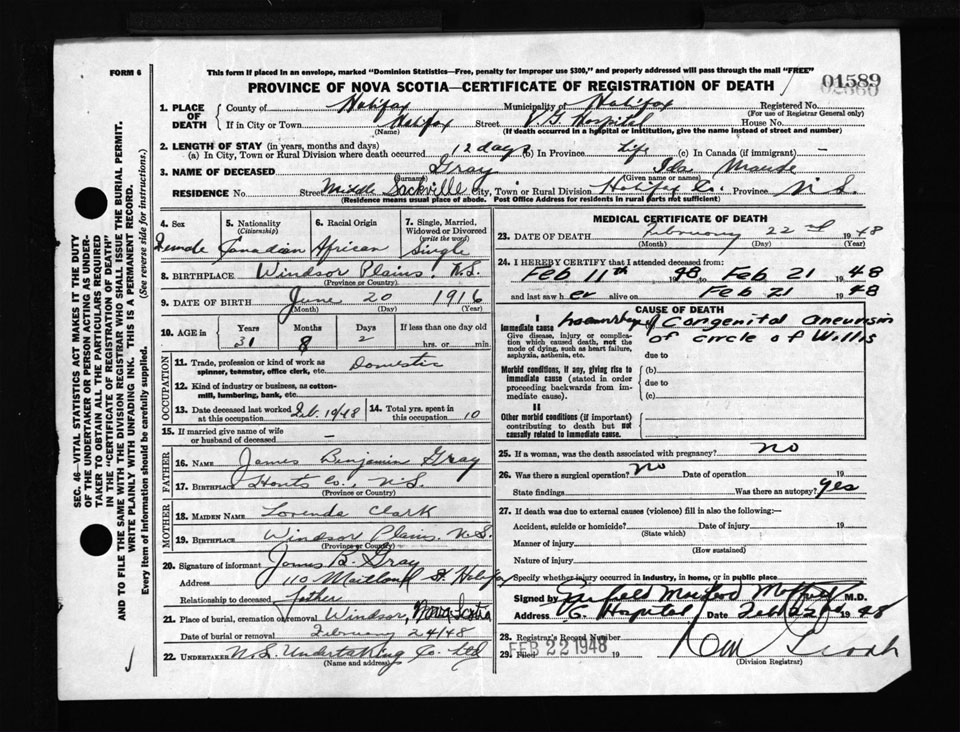 FORM 6
This form if placed in an envelope, marked "Dominion Statistics—Free, penalty for improper use $300," and properly addressed will pass through the mail "FREE"
01589
PROVINCE OF NOVA SCOTIA—CERTIFICATE OF REGISTRATION OF DEATH
1. PLACE OF DEATH
County of Halifax Municipality of Halifax Registered No.
(For use of Registrar General only)
If in City or Town Halifax Street V. G. Hospital House No.
(Name) (If death occurred in a hospital or institution, give the name instead of street and number)
2. LENGTH OF STAY (in years, months and days)
(a) In City, Town or Rural Division where death occurred 12 days (b) In Province Life (c) In Canada (if immigrant) —
3. NAME OF DECEASED Gray Ida Maude
(Surname) (Given name or names)
RESIDENCE No. Street Middle Sackville City, Town or Rural Division Halifax Co. Province N.S.
(Residence means usual place of abode. Post Office Address for residents in rural parts not sufficient)
4. Sex
Female
5. Nationality
(Citizenship)
Canadian
6. Racial Origin
African
7. Single, Married, Widowed or Divorced
(write the word)
Single
8. BIRTHPLACE Windsor Plains, N.S.
(Province or Country)
9. DATE OF BIRTH June 20 1916
(Month) (Day) (Year)
10. AGE in Years Months Days If less than one day old
31 8 2 hrs. or min.
OCCUPATION
11. Trade, profession or kind of work as spinner, teamster, office clerk, etc. Domestic
12. Kind of industry or business, as cotton-mill, lumbering, bank, etc.
13. Date deceased last worked at this occupation Feb. 10/48
14. Total yrs. spent in this occupation 10
15. If married give name of wife or husband of deceased —
FATHER
16. NAME James Benjamin Gray
17. BIRTHPLACE Hants Co., N.S.
(Province or Country)
MOTHER
18. MAIDEN NAME Lorenda Clark
19. BIRTHPLACE Windsor Plains, N.S.
(Province or Country)
20. Signature of informant James B. Gray
Address 110 Maitland St. Halifax
Relationship to deceased father
21. Place of burial, cremation or removal Windsor, Nova Scotia
Date of burial or removal February 24/48
22. UNDERTAKER N.S. Undertaking Co. Ltd
(Name and address)
MEDICAL CERTIFICATE OF DEATH
23. DATE OF DEATH February 22nd 1948
(Month) (Day) (Year)
24. I HEREBY CERTIFY that I attended deceased from:
Feb 11th 1948 to Feb 21 1948
and last saw her alive on Feb 21 1948
CAUSE OF DEATH
I
Immediate cause
Give disease, injury or complication which caused death, not the mode of dying, such as heart failure, asphyxia, asthenia, etc.
of Congenital aneurism
of circle of Willis
due to
Morbid conditions, if any, giving rise to immediate cause (stated in order proceeding backwards from immediate cause).
(b)
due to
(c)
II
Other morbid conditions (if important) contributing to death but not causally related to immediate cause.
25. If a woman, was the death associated with pregnancy? no
26. Was there a surgical operation? no Date of operation 19
State findings Was there an autopsy? yes
27. If death was due to external causes (violence) fill in also the following:—
Accident, suicide or homicide? Date of injury 19
(State which)
Manner of injury
(How sustained)
Nature of injury
Specify whether injury occurred in industry, in home, or in public place
Signed by M.D.
Address V. G. Hospital Date Feb 22nd 1948
28. Registrar's Record Number
29. Filed FEB 22 1948 19
(Division Registrar)
SEC. 46—VITAL STATISTICS ACT MAKES IT THE DUTY
OF THE UNDERTAKER OR PERSON ACTING AS UNDER-
TAKER TO OBTAIN ALL THE PARTICULARS REQUIRED
IN THE "CERTIFICATE OF REGISTRATION OF DEATH"
AND TO FILE THE SAME WITH THE DIVISION REGISTRAR WHO SHALL ISSUE THE BURIAL PERMIT.
WRITE PLAINLY WITH UNFADING INK. THIS IS A PERMANENT RECORD.
Every item of information should be carefully supplied. (See reverse side for instructions.)